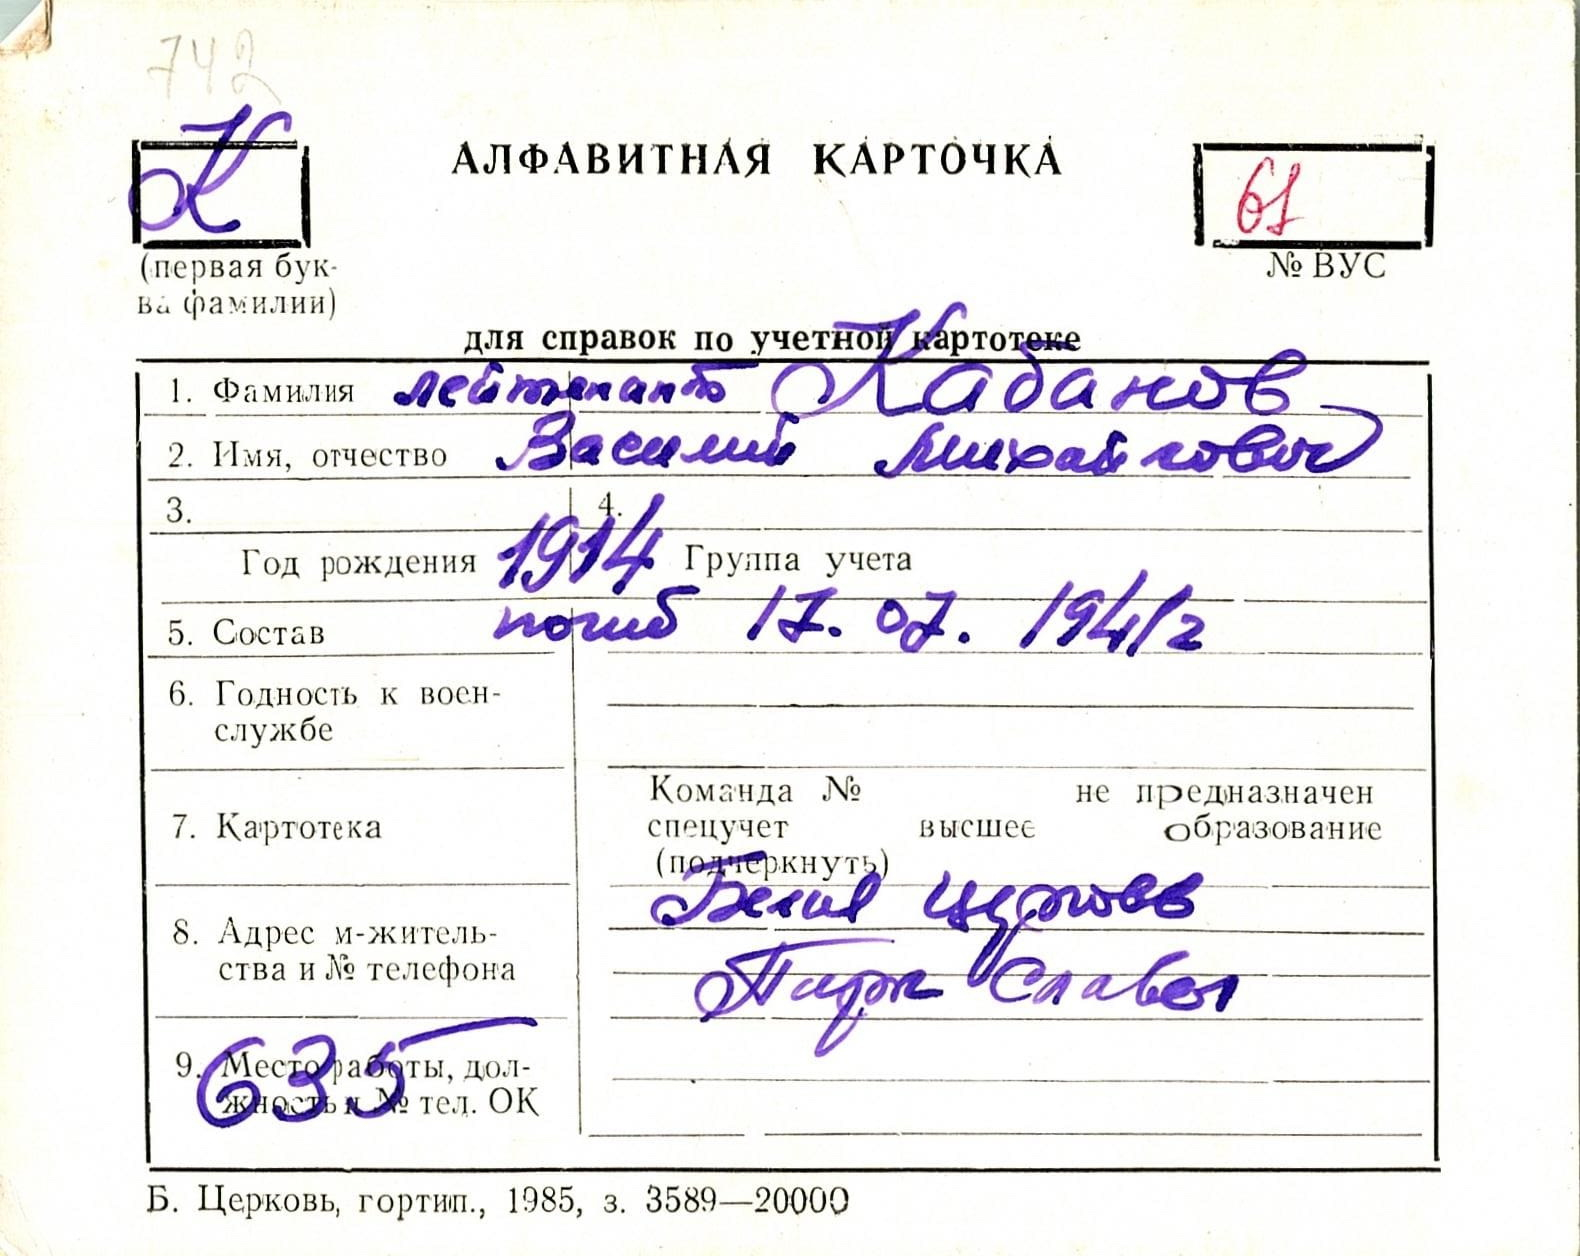 742
К
АЛФАВИТНАЯ КАРТОЧКА
61
(первая бук-
ва фамилии)
№ ВУС
для справок по учетной картотеке
1. Фамилия лейтенант Кабанов
2. Имя, отчество Василий Михайлович
3. 4.
Год рождения 1914 Группа учета
5. Состав погиб 17.07.1941г
6. Годность к воен-
службе
7. Картотека
Команда № не предназначен
спецучет высшее образование
(подчеркнуть)
8. Адрес м-житель-
ства и № телефона
Белая церковь
Парк Славы
9. Место работы, дол-
жность и № тел. ОК
635
Б. Церковь, гортип., 1985, з. 3589—20000